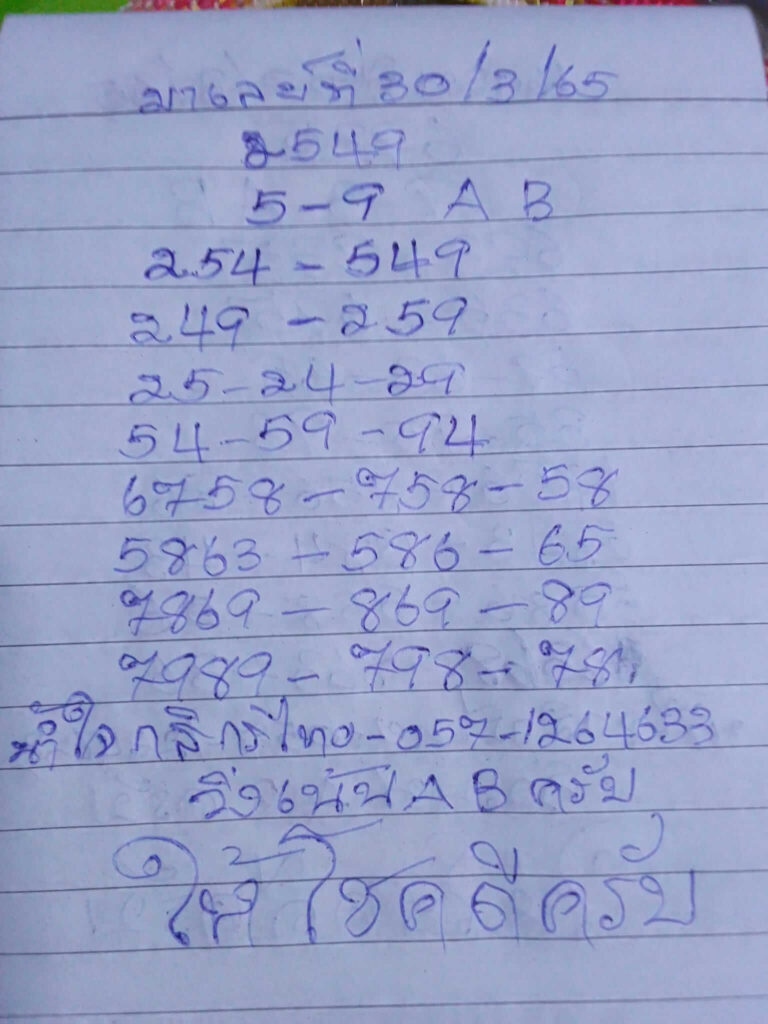 มาเลย์ที่ 30/3/65
2549
5-9 A B
254 - 549
249 - 259
25-24-29
54-59-94
6758-758-58
5863-586-65
7869-869-89
7989-798-78
น้ำใจกสิกรไทย-057-1264633
วิ่งเน้น A B ครับ
ให้โชคดีครับ